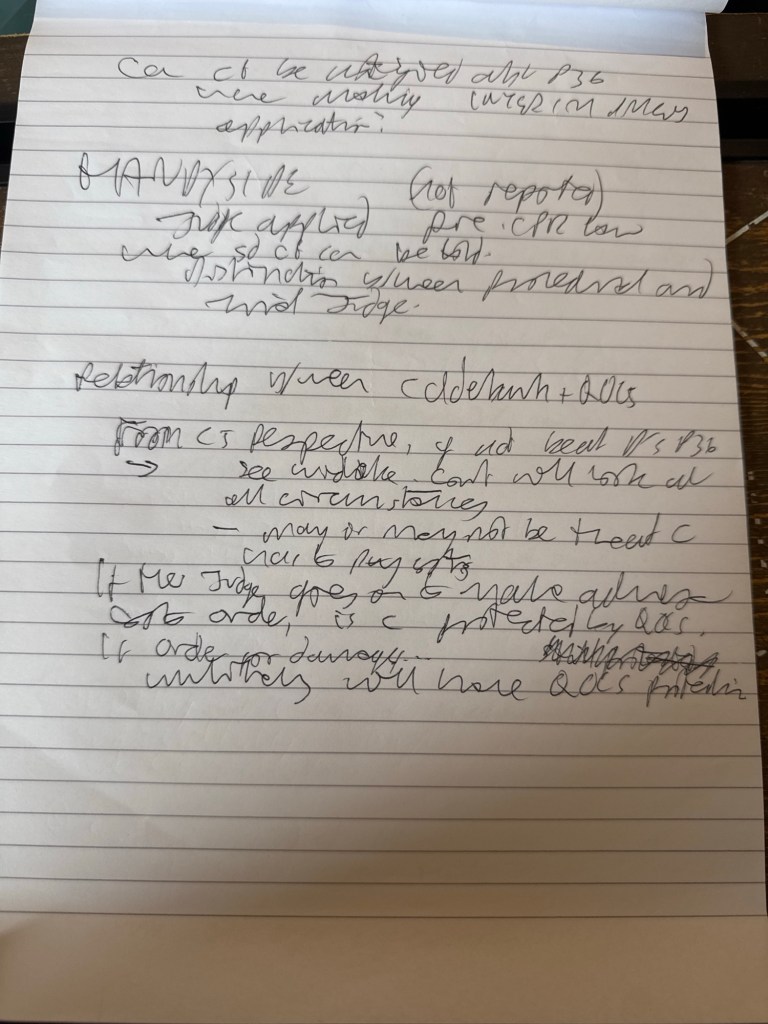 Can ct be notified abt P36
where making INTERIM
application?
HANDYSIDE (not reported)
Judge applied pre. CPR law
where so ct can be told.
Distinction b/ween procedural and
trial Judge.
Relationship b/ween + QOCS
From Cs perspective, if not beat D's P36
→ see Court will look at
all circumstances
- may or may not be that C
has to pay costs
If the Judge goes on to make adverse
costs order, is C protected by QOCS.
If order for damages...
unlikely will have QOCS protection